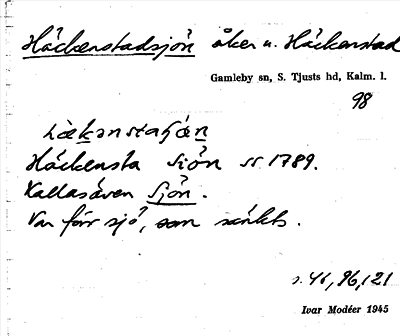 Häckenstadsjön åker u. Häckenstad
Gamleby sn, S. Tjusts hd, Kalm. l.
98
Häckensta Sjön SS. 1789.
Kallas även Sjön.
Var förr sjö, som sänkts.
s. 41, 96, 121
Ivar Modéer 1945